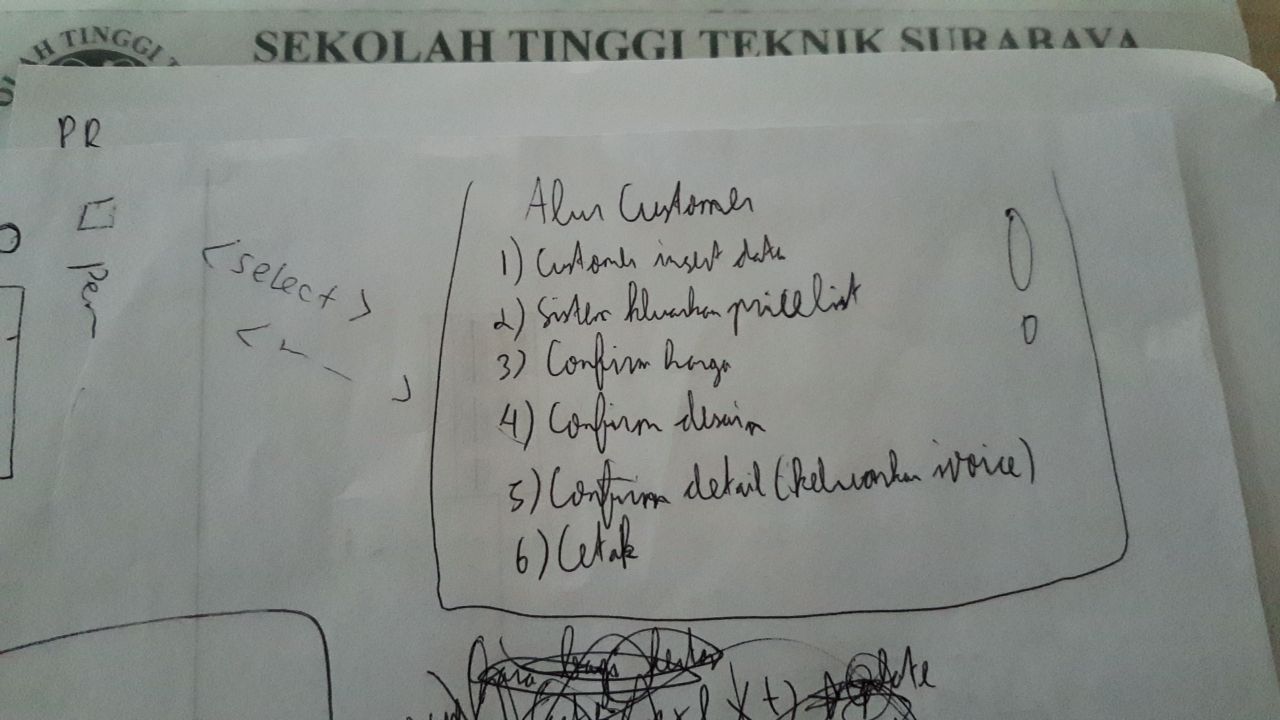 SEKOLAH TINGGI TEKNIK SURABAYA
AH TINGGI T
PR
Per
<select>
Alur Customer
1) Customer insert data
2) Sistem kluarkan pricelist
3) Confirm harga
4) Confirm desain
5) Confirm detail (keluarkan ivoice)
6) Cetak